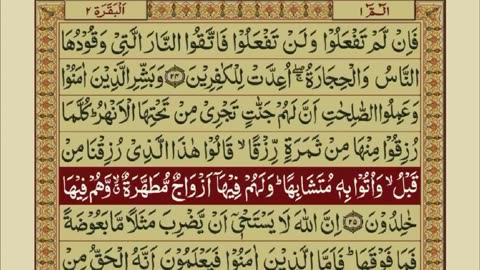 الٓمّٓ ١
اَلْبَقَرَة ٢
فَاِنْ لَّمْ تَفْعَلُوْا وَلَنْ تَفْعَلُوْا فَاتَّقُوا النَّارَ الَّتِیْ وَقُوْدُهَا
النَّاسُ وَالْحِجَارَةُ ۖۚ اُعِدَّتْ لِلْكٰفِرِیْنَ ﴿۲۴﴾ وَبَشِّرِ الَّذِیْنَ اٰمَنُوْا
وَعَمِلُوا الصّٰلِحٰتِ اَنَّ لَهُمْ جَنّٰتٍ تَجْرِیْ مِنْ تَحْتِهَا الْاَنْهٰرُ ؕ كُلَّمَا
رُزِقُوْا مِنْهَا مِنْ ثَمَرَةٍ رِّزْقًا ۙ قَالُوْا هٰذَا الَّذِیْ رُزِقْنَا مِنْ
قَبْلُ ۙ وَاُتُوْا بِهٖ مُتَشَابِهًا ؕ وَلَهُمْ فِیْهَاۤ اَزْوَاجٌ مُّطَهَّرَةٌ ۙۗ وَّهُمْ فِیْهَا
خٰلِدُوْنَ ﴿۲۵﴾ اِنَّ اللّٰهَ لَا یَسْتَحْیٖۤ اَنْ یَّضْرِبَ مَثَلًا مَّا بَعُوْضَةً
فَمَا فَوْقَهَا ؕ فَاَمَّا الَّذِیْنَ اٰمَنُوْا فَیَعْلَمُوْنَ اَنَّهُ الْحَقُّ مِنْ